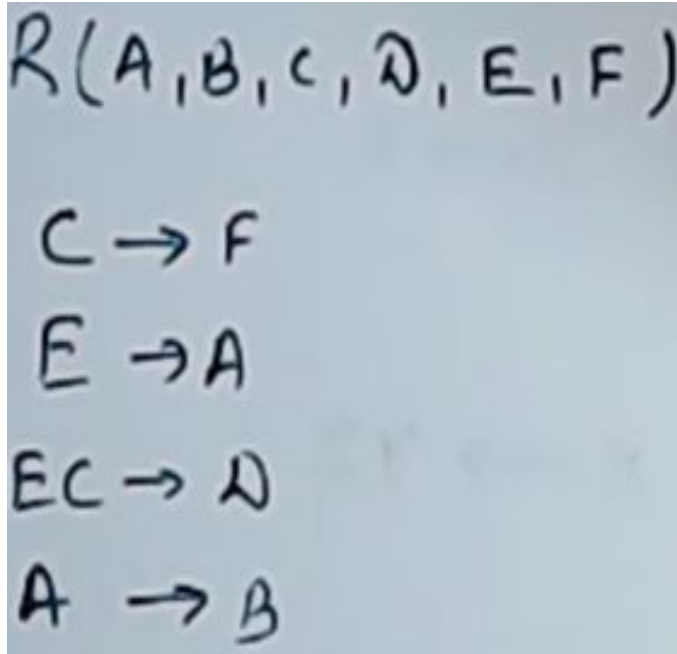 R(A,B,C,D,E,F)
C → F
E → A
EC → D
A → B